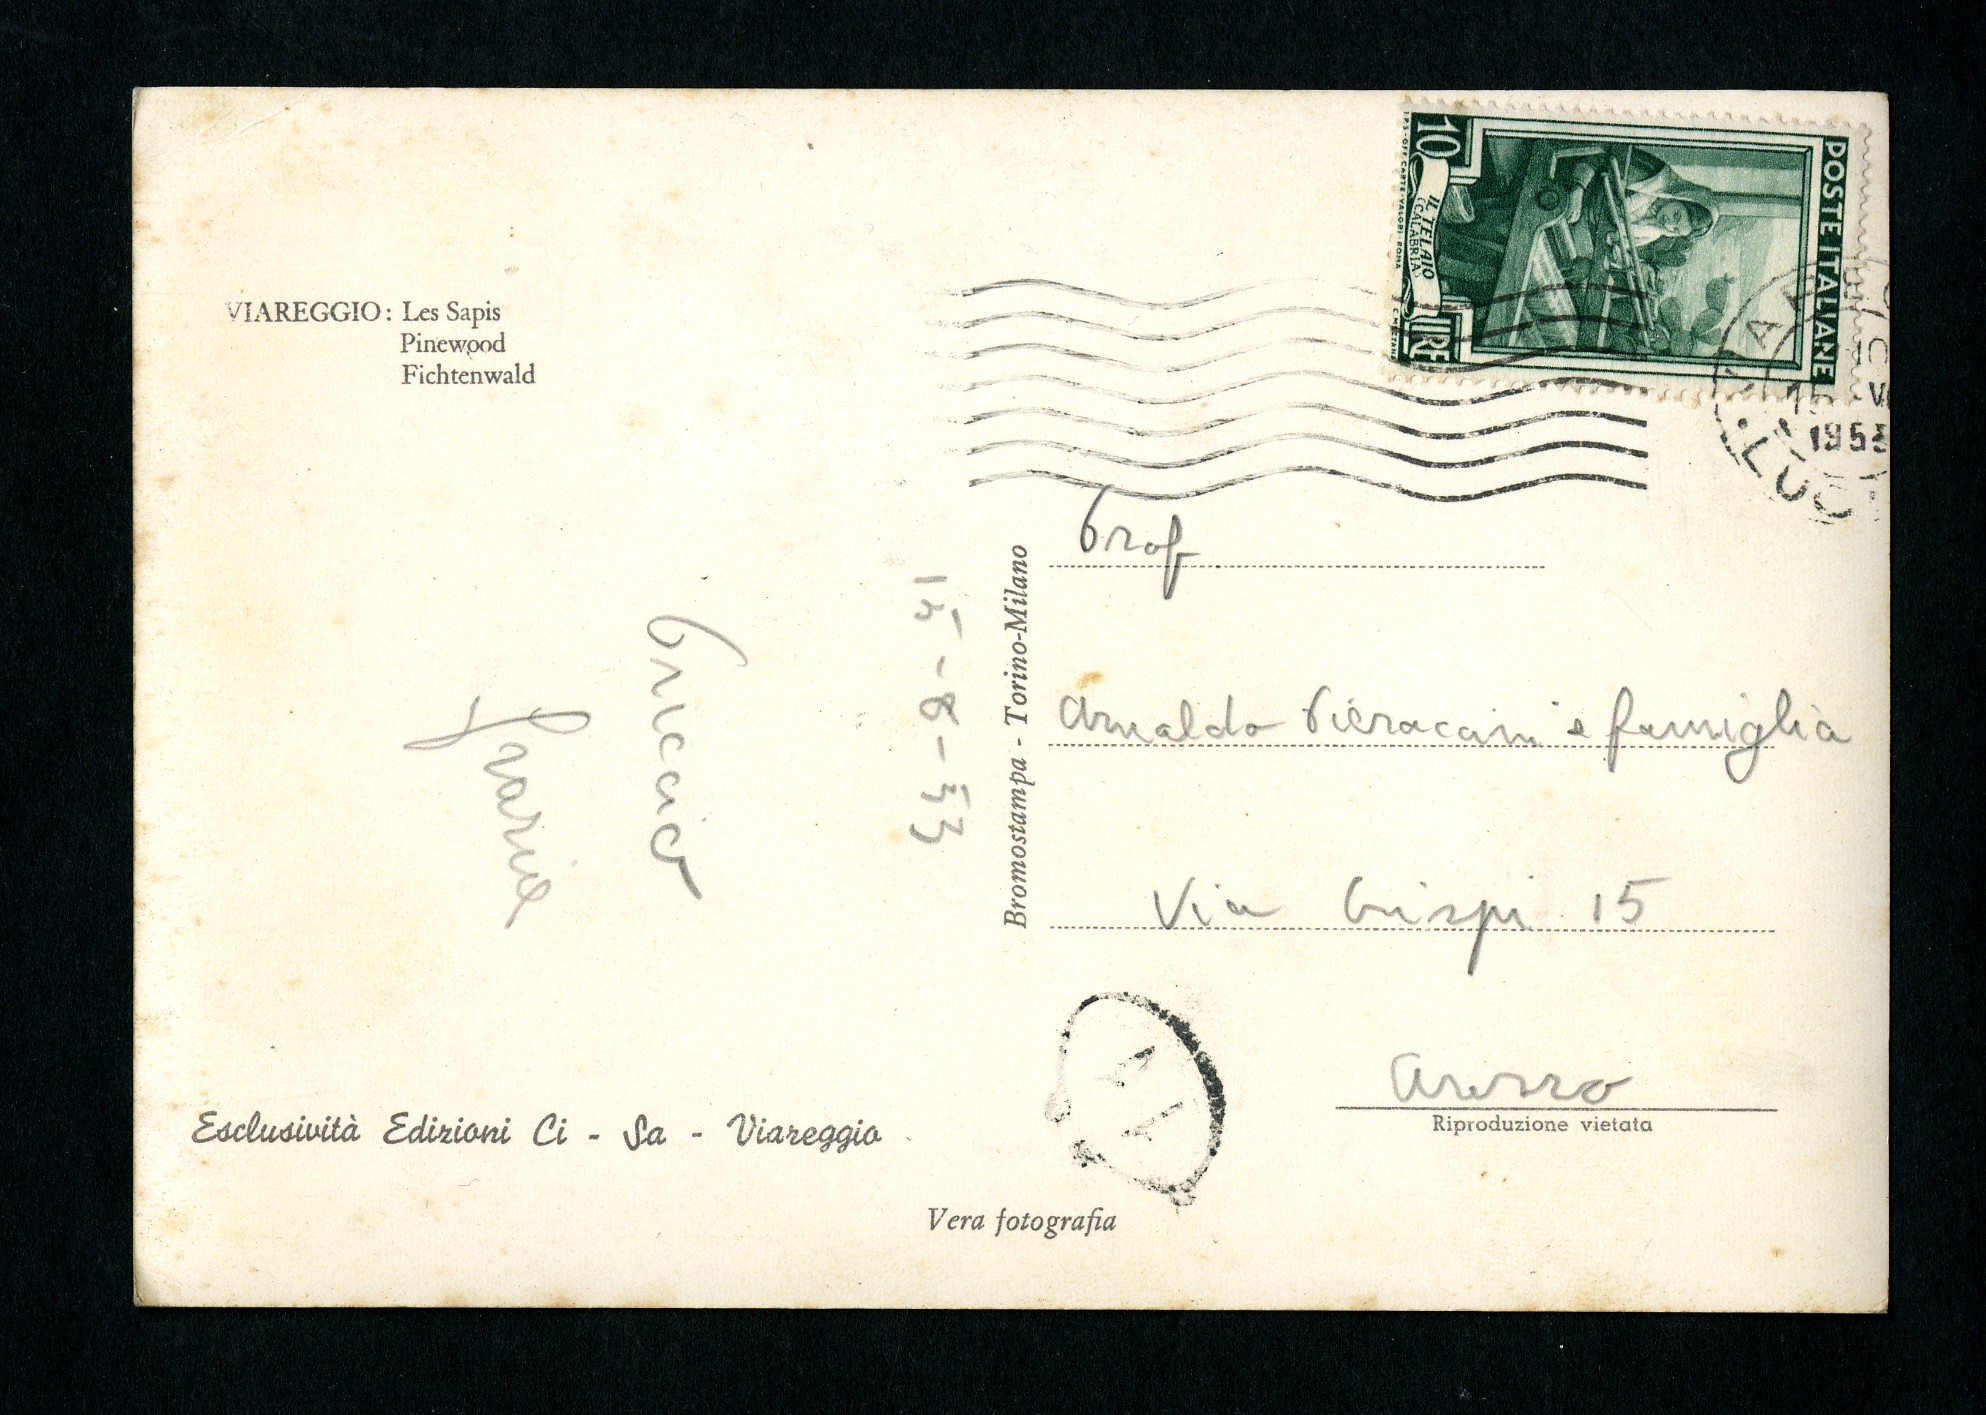 VIAREGGIO: Les Sapis
Pinewood
Fichtenwald
15-8-53
Esclusività Edizioni Ci - Sa - Viareggio
Bromostampa - Torino-Milano
Vera fotografia
POSTE ITALIANE
10
LIRE
IL TELAIO
(CALABRIA)
1953
Prof
Arnaldo Pieraccini e famiglia
Via Crispi 15
Arezzo
Riproduzione vietata